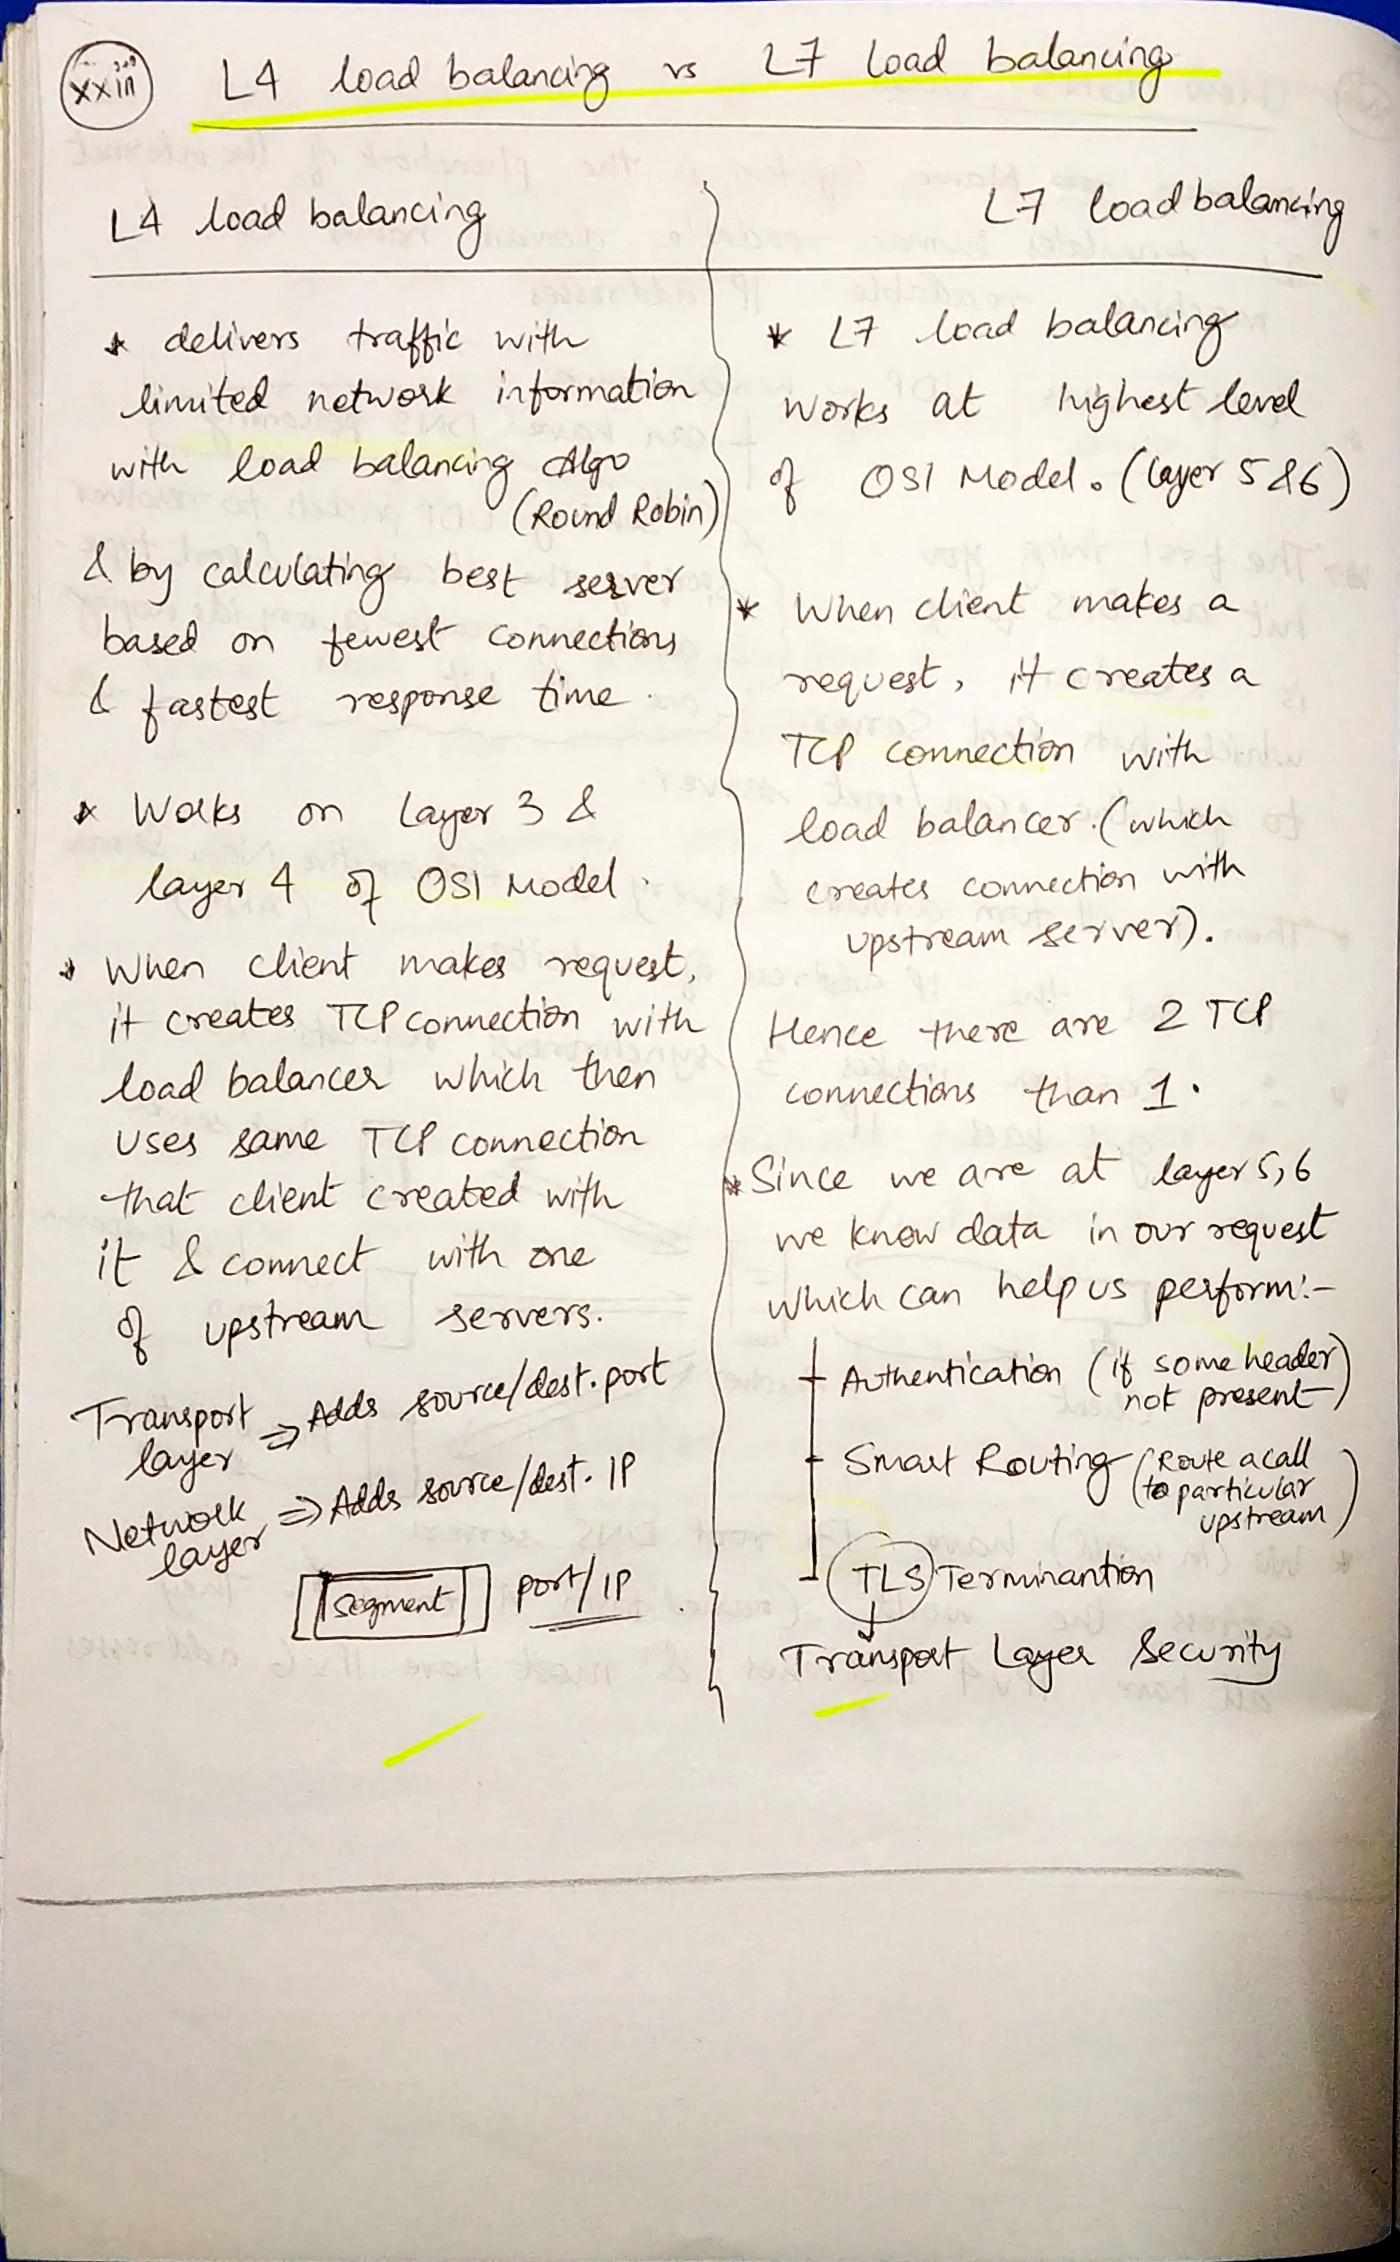 xxiii
L4 load balancing vs L7 load balancing
L4 load balancing
* delivers traffic with
limited network information
with load balancing Algo
(Round Robin)
& by calculating best server
based on fewest connections
& fastest response time.
* Works on Layer 3 &
layer 4 of OSI Model.
* When client makes request,
it creates TCP connection with
load balancer which then
uses same TCP connection
that client created with
it & connect with one
of upstream servers.
Transport
layer => Adds source/dest. port
Network
layer => Adds source/dest. IP
segment port/IP
L7 load balancing
* L7 load balancing
works at highest level
of OSI Model. (layer 5 & 6)
* When client makes a
request, it creates a
TCP connection with
load balancer. (which
creates connection with
upstream server).
Hence there are 2 TCP
connections than 1.
* Since we are at layer 5, 6
we know data in our request
which can help us perform:-
Authentication (if some header
not present)
Smart Routing (Route a call
to particular
upstream)
TLS Terminantion
Transport Layer Security